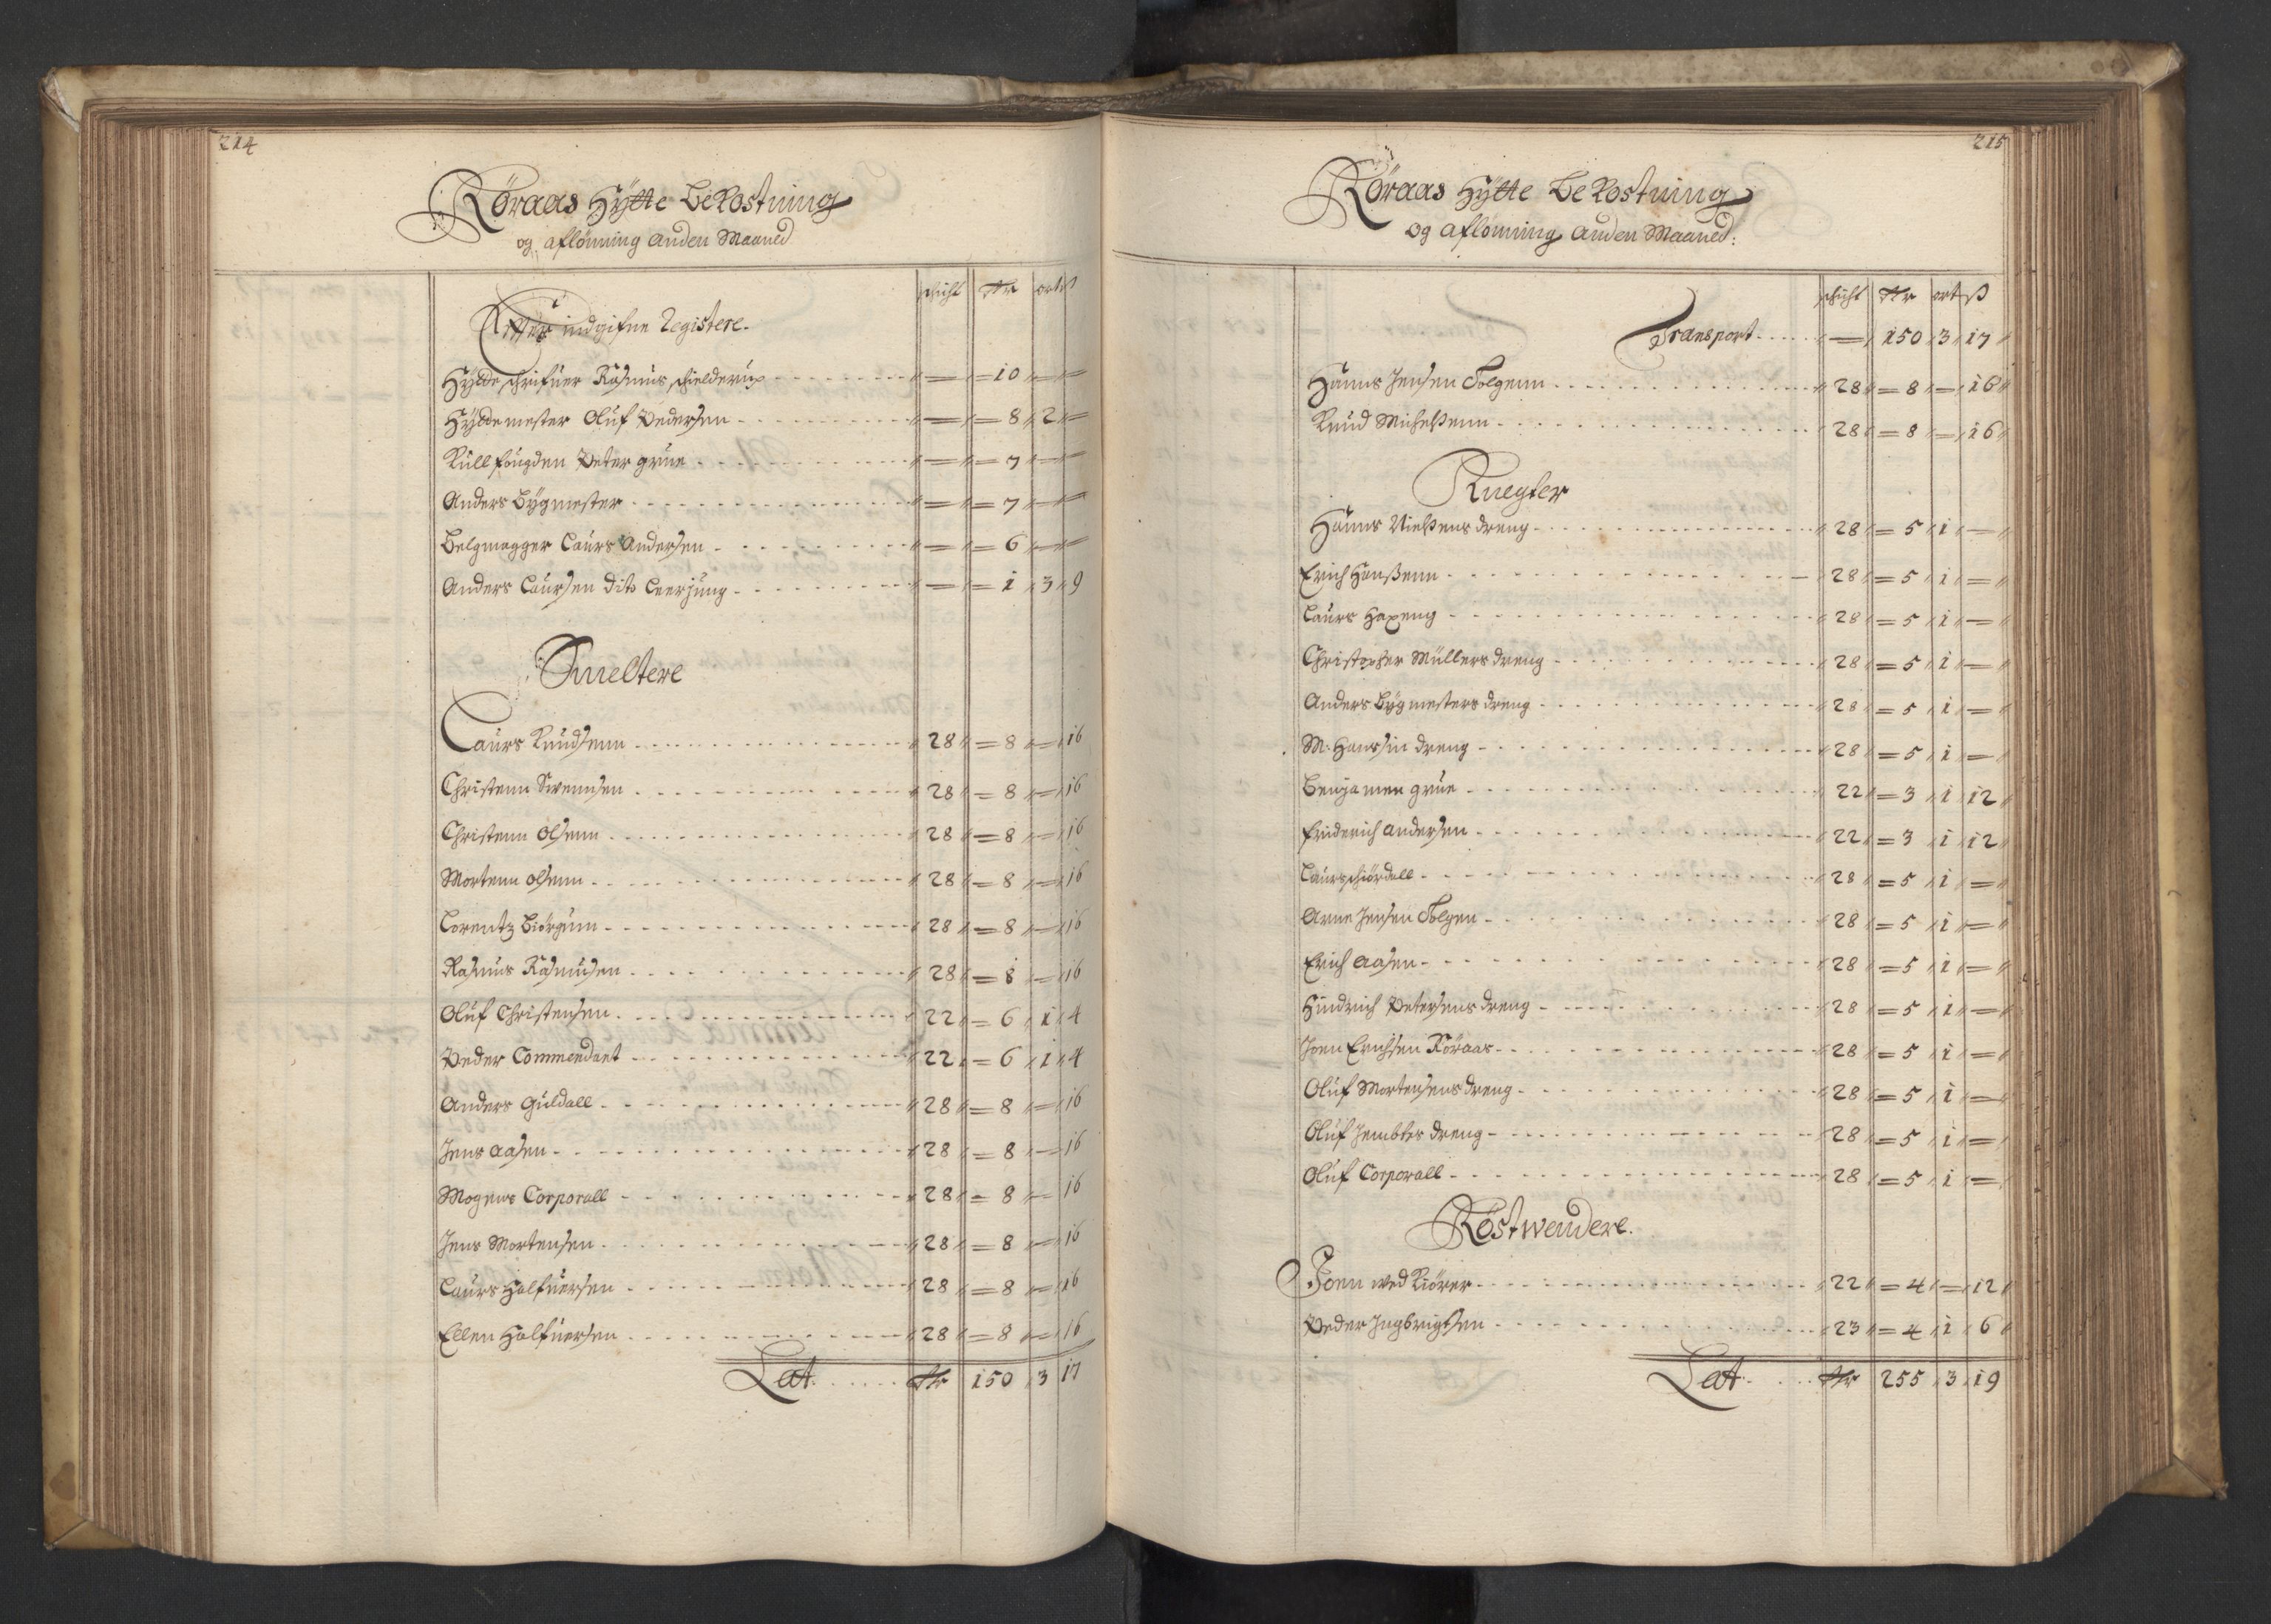 214
Röraas Hÿtte beKostning
og aflönning anden Maaned
schicht Rdr ort ß
Effter indgifne Registere.
Hÿtteschrifuer Rasmus Schielderup — = 10 — —
Hÿttemester Oluf Pedersen — = 8 2 —
Kullfougden Peter grúe — = 7 — —
Anders Bÿgmester — = 7 — —
Belgmagger Laurs Andersen — = 6 — —
Anders Laursen dito Leerjung — = 1 3 9
Smeltere
Laurs Knudsenn 28 = 8 — 16
Christenn Svennsen 28 = 8 — 16
Christenn Olsenn 28 = 8 — 16
Mortenn Olsenn 28 = 8 — 16
Lorentz Biörgum 28 = 8 — 16
Rasmus Rasmusen 28 = 8 — 16
Oluf Christensen 22 = 6 1 4
Peder Commendant 22 = 6 1 4
Anders Guldall 28 = 8 — 16
Jens Aasen 28 = 8 — 16
Mogens Corporall 28 = 8 — 16
Jens Mortensen 28 = 8 — 16
Laurs Halfuersen 28 = 8 — 16
Ellen Halfuersen 28 = 8 — 16
Lat. Rdr 150 3 17
215
Röraas Hÿtte beKostning
og aflönning anden Maaned:
schicht Rdr ort ß
Transport — 150 3 17
Hanns Jensen Tolgenn 28 = 8 — 16
Knud Michelßenn 28 = 8 — 16
Knegter
Hanns Nielßens dreng 28 = 5 1 —
Erich Hanßenn 28 = 5 1 —
Laurs Haxeng 28 = 5 1 —
Christopher Müllers dreng 28 = 5 1 —
Anders Bÿgmesters dreng 28 = 5 1 —
M. Hanssin dreng 28 = 5 1 —
Benjamen grúe 22 = 3 1 12
Friderich Andersen 22 = 3 1 12
Laurs schiördall 28 = 5 1 —
Arne Jensen Tolgen 28 = 5 1 —
Erich Aasen 28 = 5 1 —
Hindrich Petersens dreng 28 = 5 1 —
Joen Erichsen Röraas 28 = 5 1 —
Oluf Mortensens dreng 28 = 5 1 —
Oluf Jembtes dreng 28 = 5 1 —
Oluf Corporall 28 = 5 1 —
Röstwendere.
Joen wed Kiörer 22 = 4 — 12
Peder Ingbrigtsen 23 = 4 1 6
Lat Rdr 255 3 19